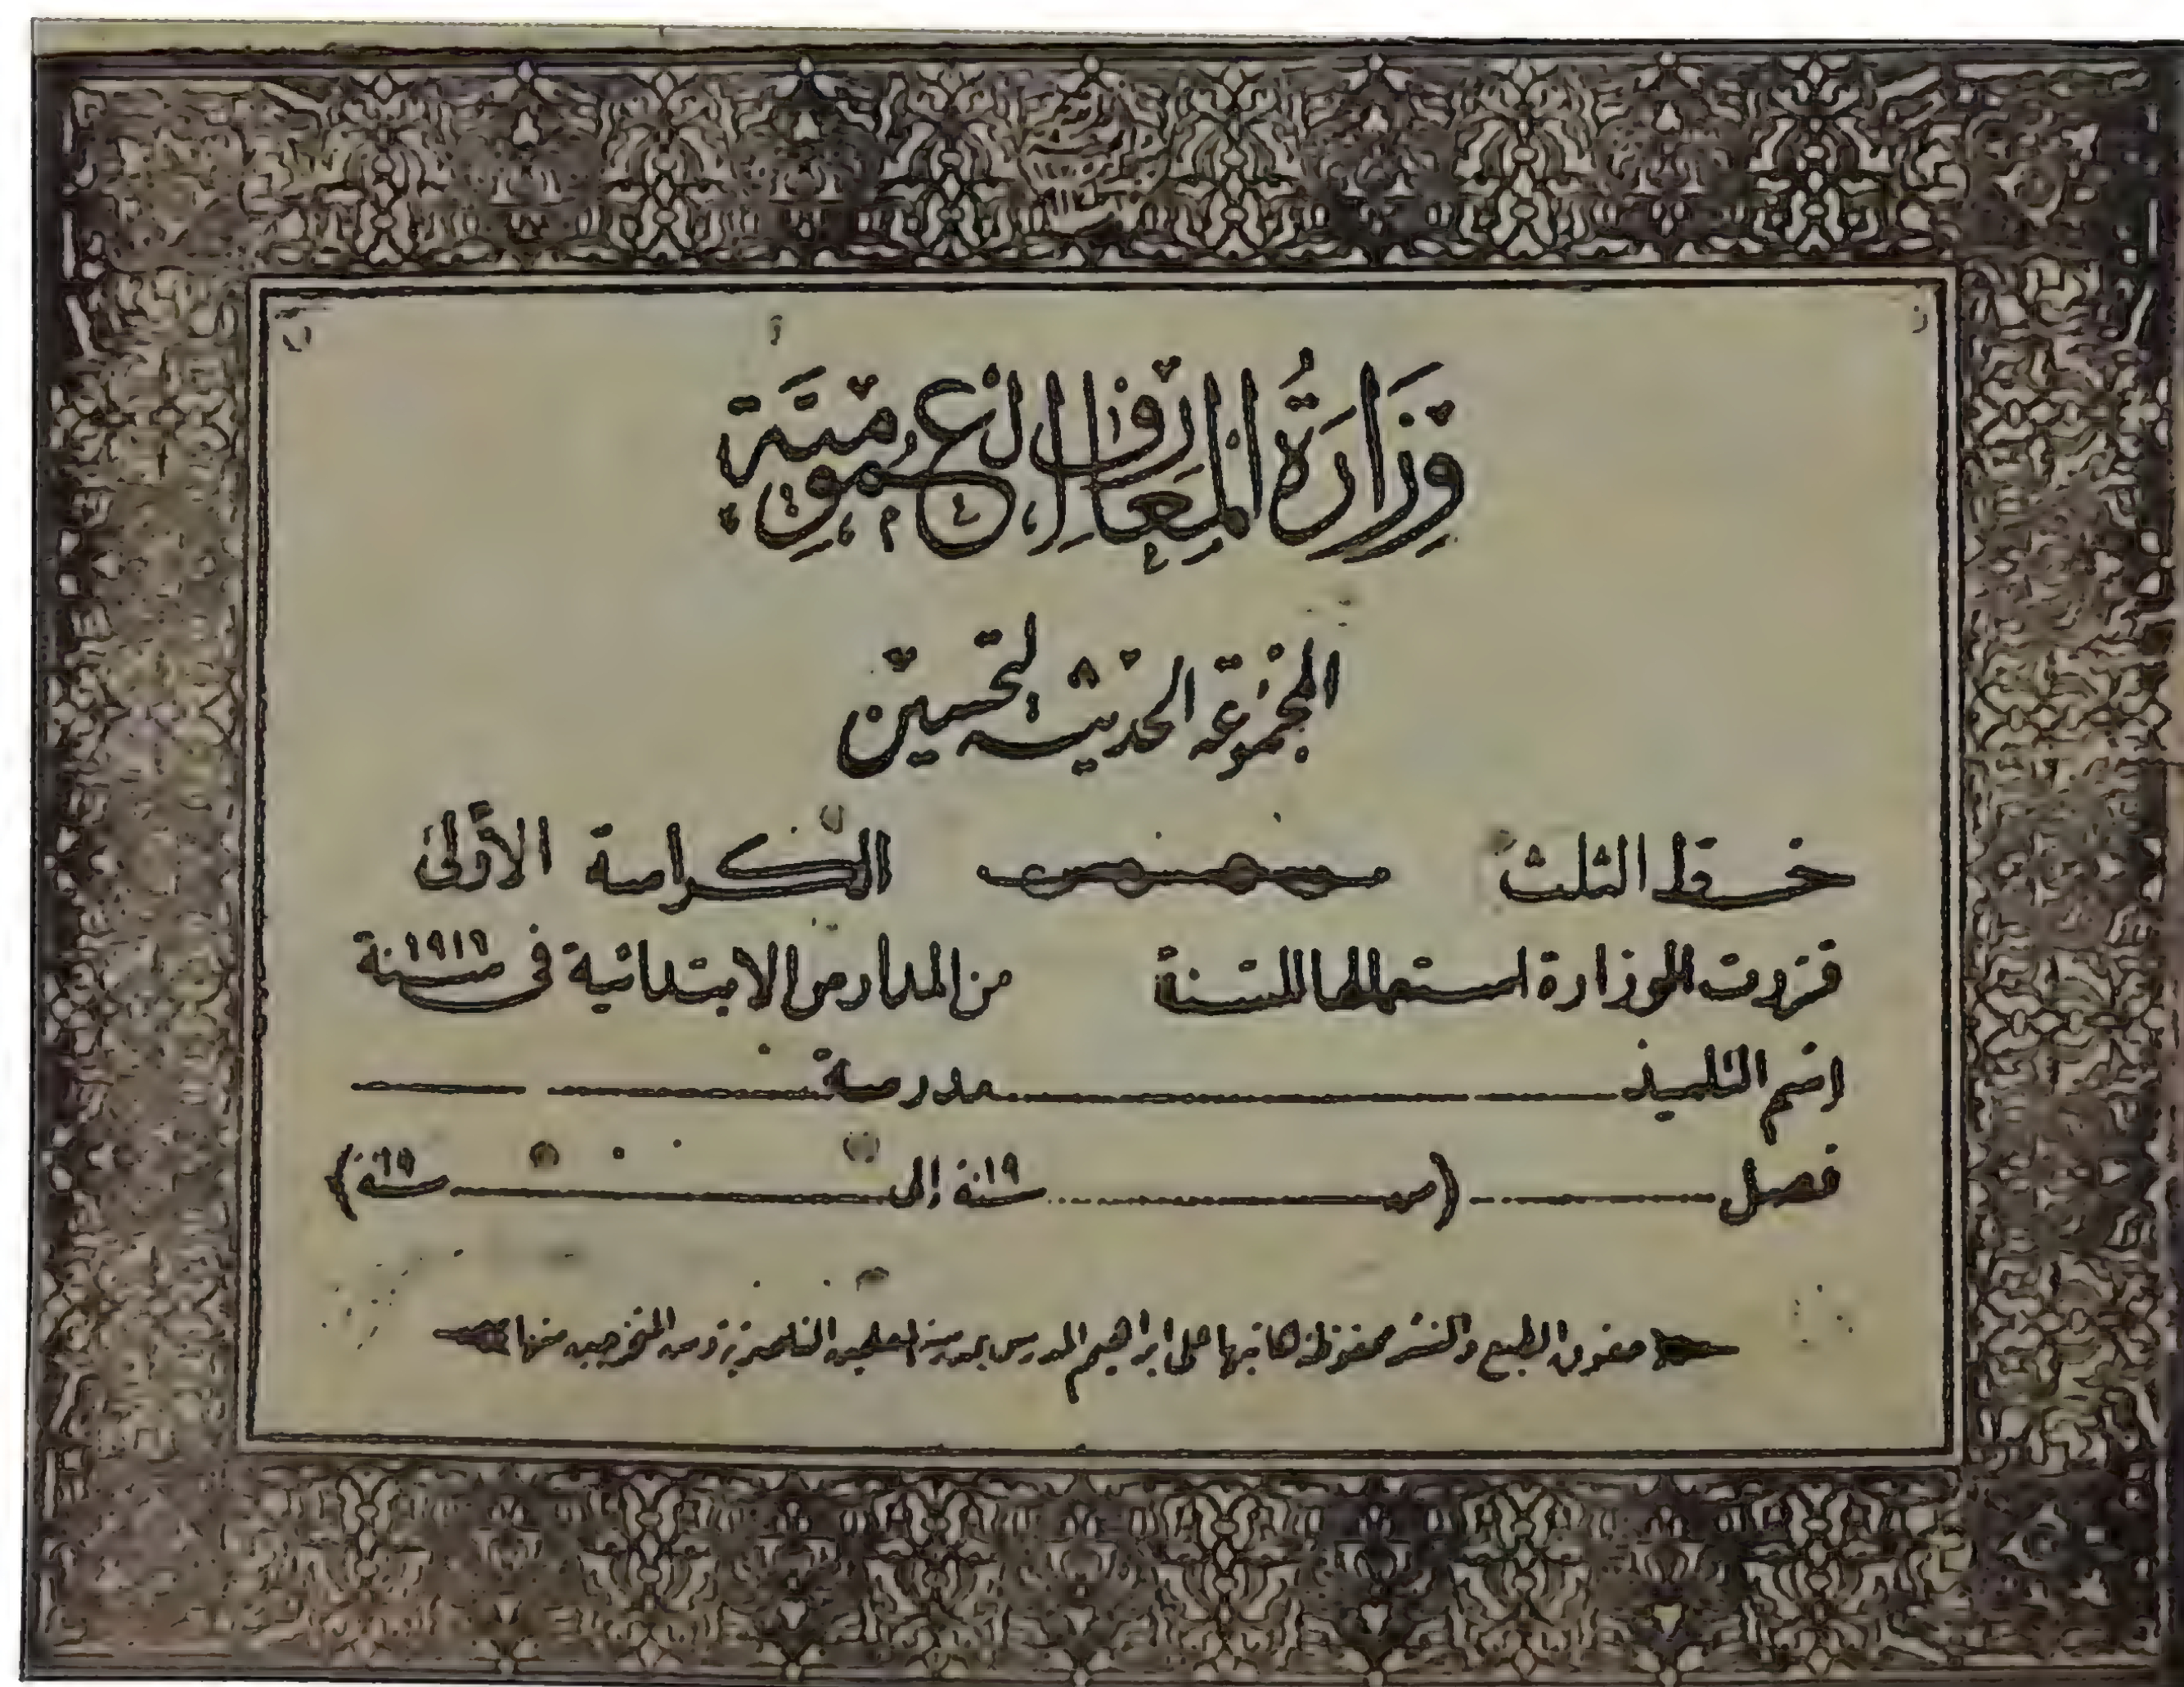 وَزَارَةُ الْمَعَارِفِ الْعُمُومِيَّة
المجموعة الحديثة لتحسين
خط الثلث الكراسة الأولى
قررت الوزارة استعمالها للسنة من المدارس الابتدائية في سنة ١٩١٦
اسم التلميذ مدرسة
فصل (من سنة ١٩ إلى سنة ١٩)
حقوق الطبع والنشر محفوظة لكاتبها على ابراهيم المدرس بمدرسة المعلمين الناصرية ومن المتخرجين منها